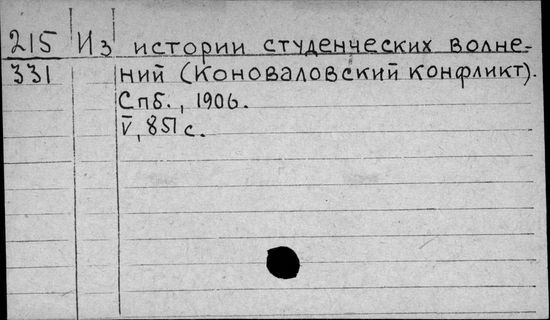 215 Из истории студенческих волне-
331 ний (Коноваловский конфликт).
Спб., 1906.
V, 851 с.